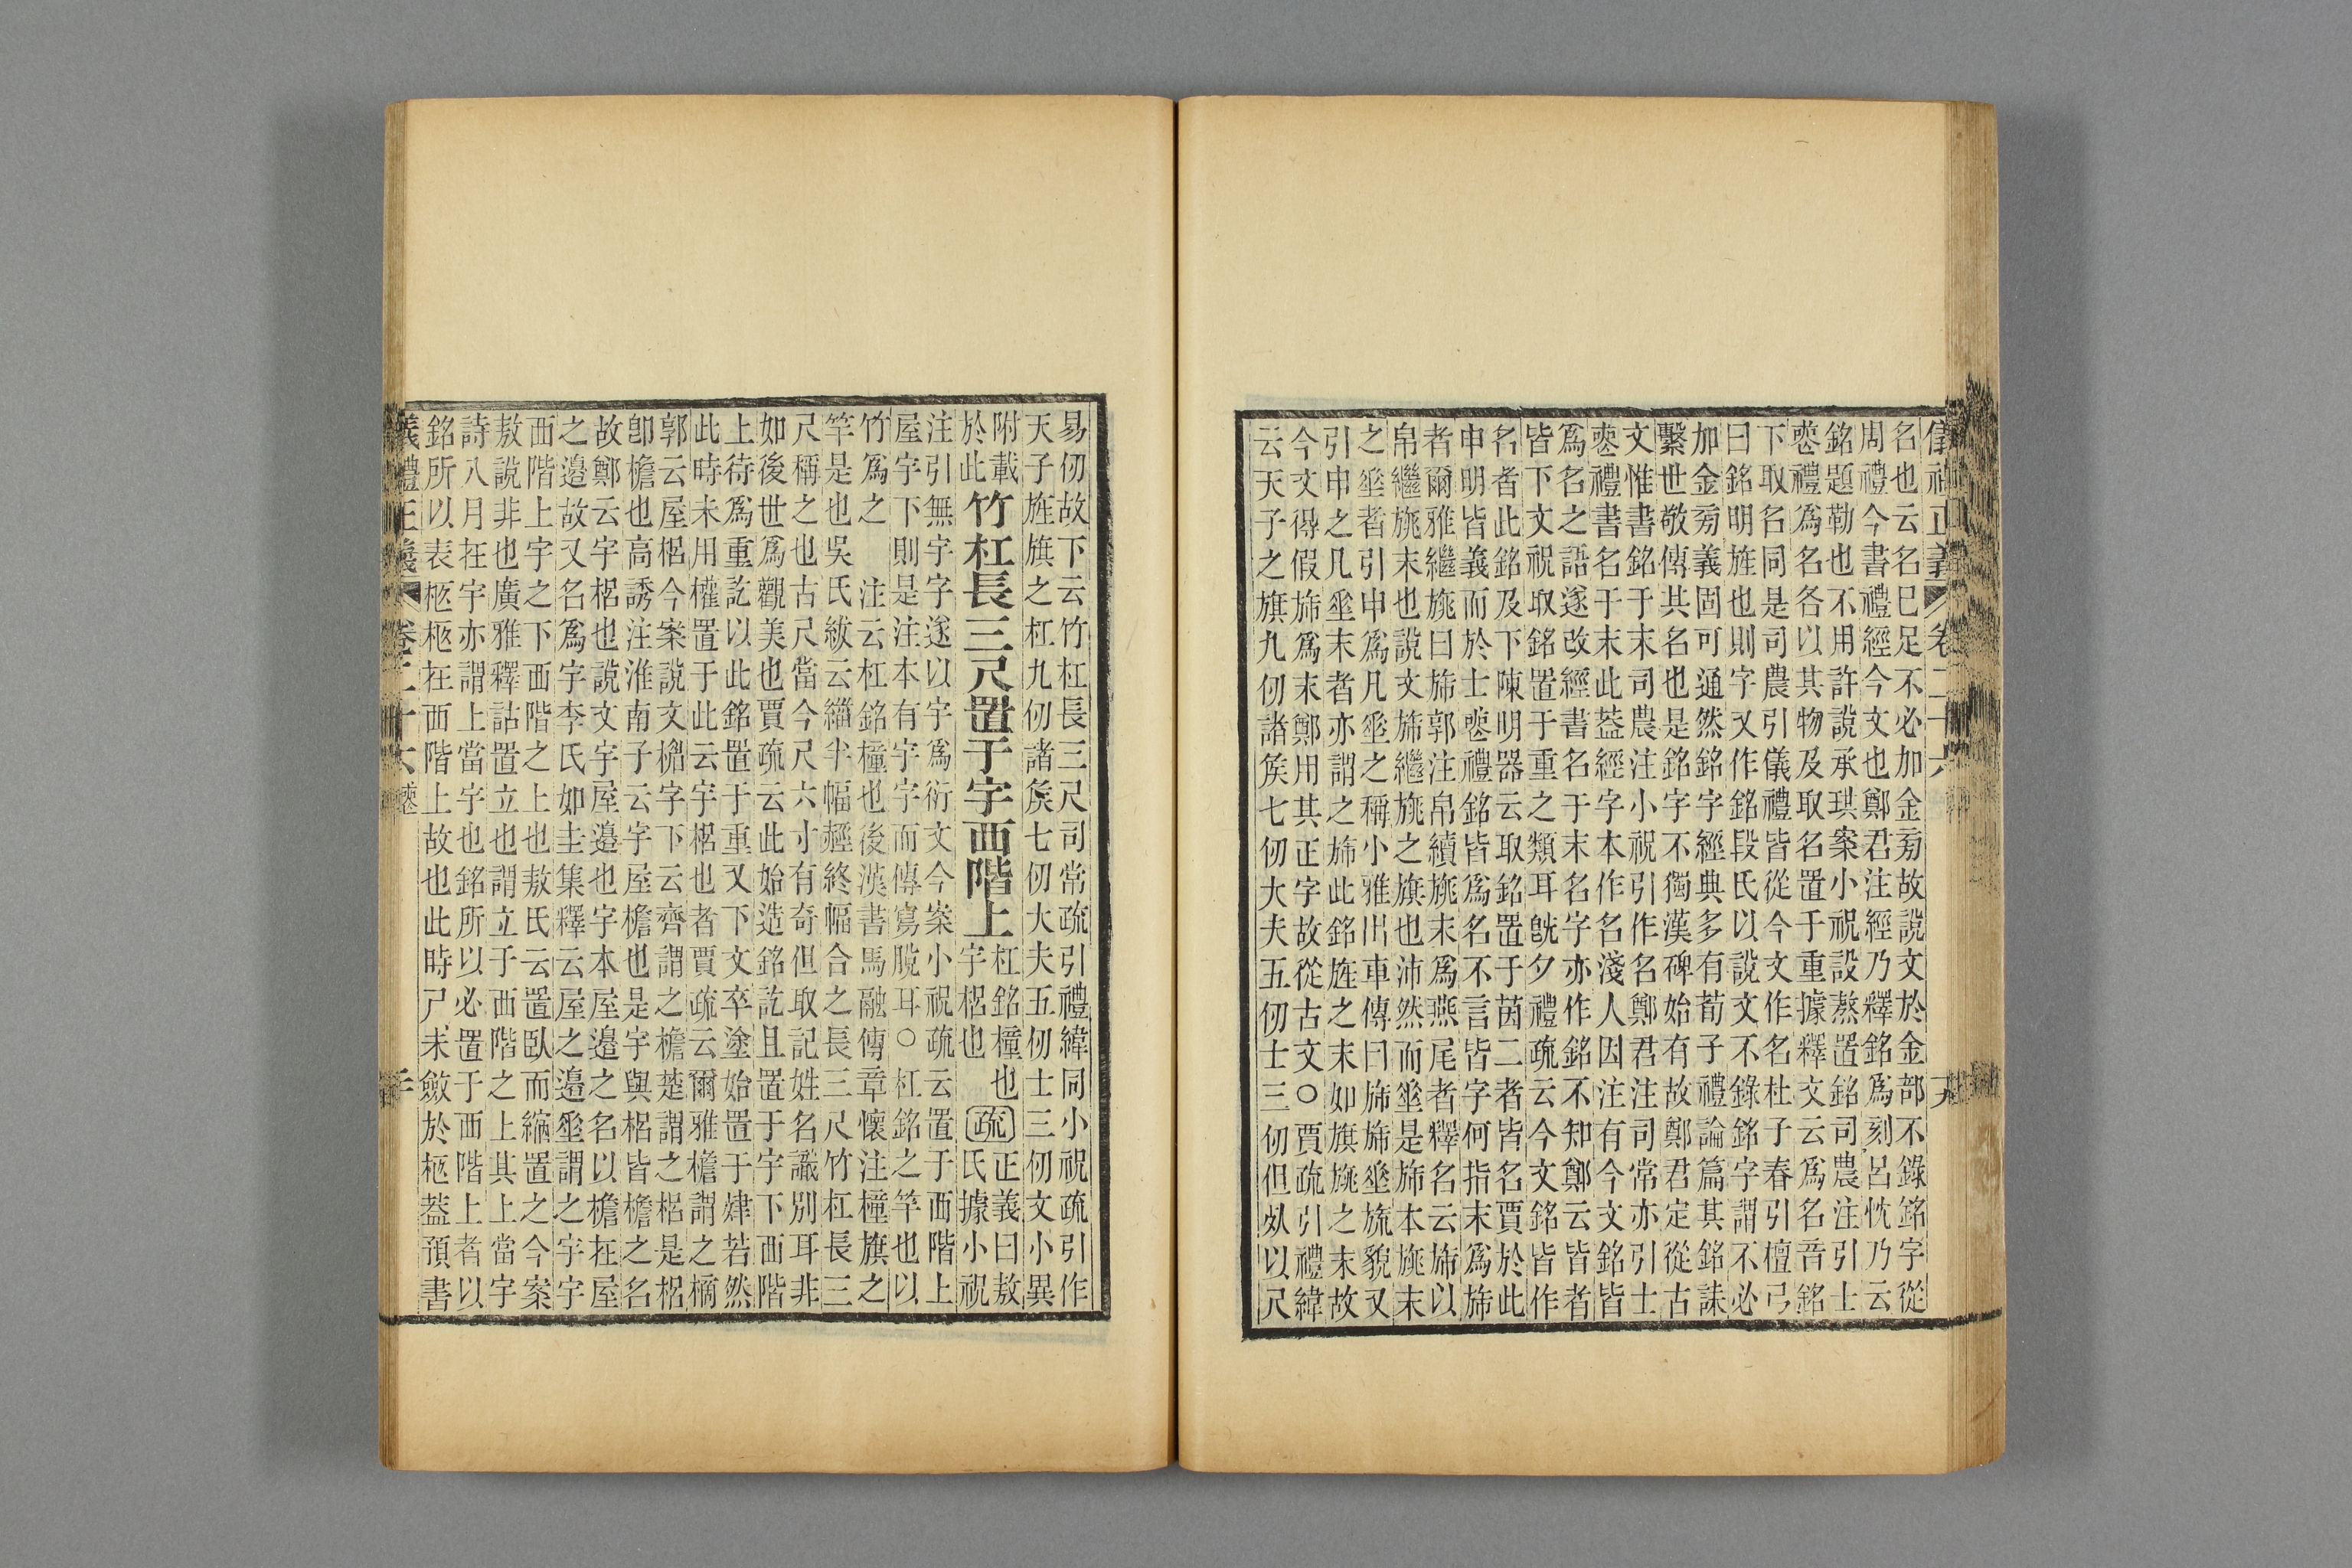 名也云名已足不必加金㫄故說文於金部不錄銘字從
周禮今書禮經今文也鄭君注經乃釋銘爲刻呂忱乃云
銘題勒也不用許說承珙案小祝設熬置銘司農注引士
喪禮爲名各以其物及取名置于重據釋文云爲名音銘
下取名同是司農引儀禮皆從今文作名杜子春引檀弓
曰銘明旌也則字又作銘段氏以說文不錄銘字謂不必
加金㫄義固可通然銘字經典多有荀子禮論篇其銘誄
繫世敬傳其名也是銘字不獨漢碑始有故鄭君定從古
文惟書銘于末司農注小祝引作名鄭君注司常亦引士
喪禮書名于末此葢經字本作名淺人因注有今文銘皆
爲名之語遂改經書名于末名字亦作銘不知鄭云皆者
皆下文祝取銘置于重之類耳旣夕禮疏云今文銘皆作
名者此銘及下陳明器云取銘置于茵二者皆名賈於此
申明皆義而於士喪禮銘皆爲名不言皆字何指末爲旆
者爾雅繼旐曰旆郭注帛續旐末爲燕尾者釋名云旆以
帛繼旐末也說文旆繼旐之旗也沛然而垂是旆本旐末
之垂者引申爲凡垂之稱小雅出車傳曰旆旆垂旒貌又
引申之凡垂末者亦謂之旆此銘旌之末如旗旐之末故
今文得假旆爲末鄭用其正字故從古文○賈疏引禮緯
云天子之旗九仞諸矦七仞大夫五仞士三仞但㚢以尺
易仞故下云竹杠長三尺司常疏引禮緯同小祝疏引作
天子旌旗之杠九仞諸矦七仞大夫五仞士三仞文小異
附載於此
竹杠長三尺置于宇西階上
杠銘橦也宇梠也
疏
正義曰敖氏據小祝
注引無宇字遂以宇爲衍文今案小祝疏云置于西階上
屋宇下則是注本有宇字而傳寫脫耳○杠銘之竿也以
竹爲之 注云杠銘橦也後漢書馬融傳章懷注橦旗之
竿是也吳氏紱云緇半幅䞓終幅合之長三尺竹杠長三
尺稱之也古尺當今尺六寸有奇但取記姓名識別耳非
如後世爲觀美也賈疏云此始造銘訖且置于宇下西階
上待爲重訖以此銘置于重又下文卒塗始置于肂若然
此時未用權置于此云宇梠也者賈疏云爾雅檐謂之樀
郭云屋梠今案說文楣字下云齊謂之檐楚謂之梠是梠
卽檐也高誘注淮南子云宇屋檐也是宇與梠皆檐之名
故鄭云宇梠也說文宇屋邊也宇本屋邊之名以檐在屋
之邊故又名爲宇李氏如圭集釋云屋之邊垂謂之宇宇
西階上宇之下西階之上也敖氏云置臥而縮置之今案
敖說非也廣雅釋詁置立也謂立于西階之上其上當宇
詩八月在宇亦謂上當宇也銘所以必置于西階上者以
銘所以表柩柩在西階上故也此時尸未斂於柩葢預書